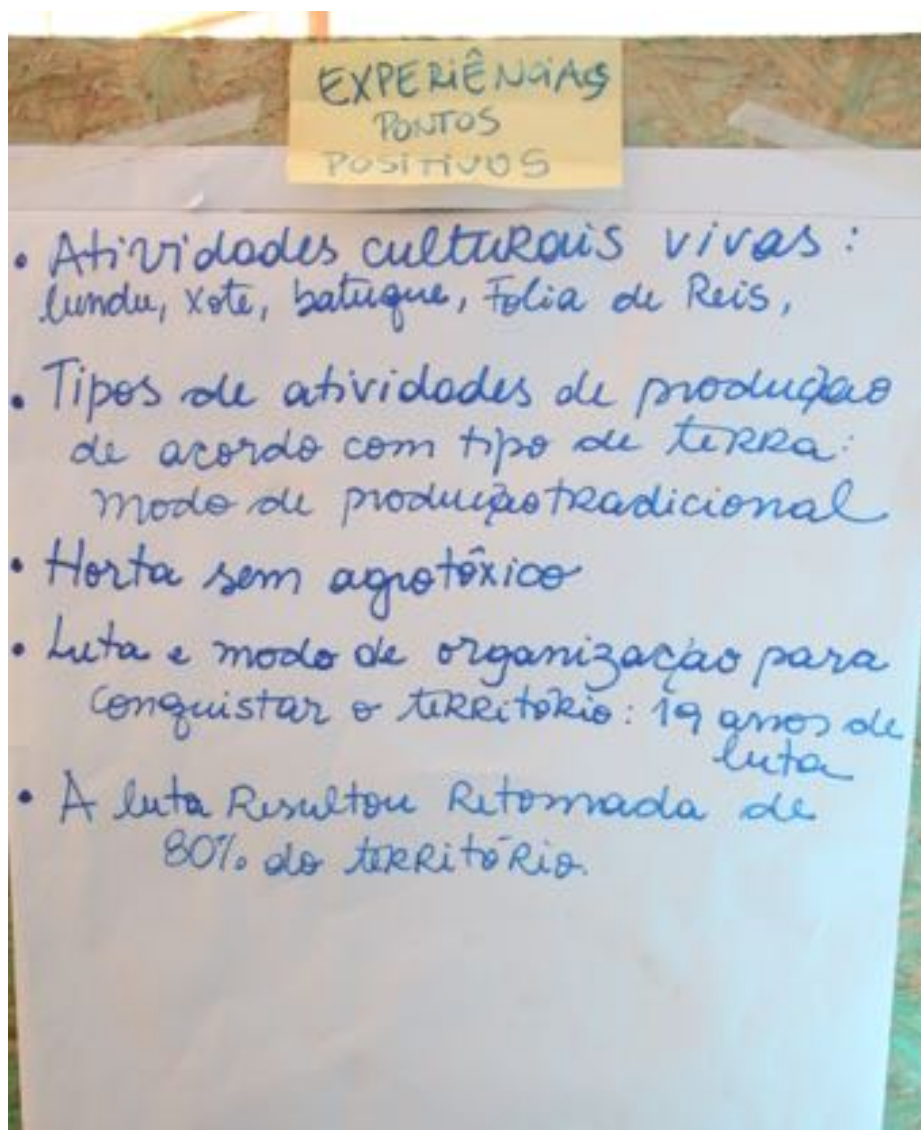 EXPERIÊNCIAS
PONTOS
POSITIVOS
• Atividades culturais vivas:
lundu, xote, batuque, Folia de Reis,
• Tipos de atividades de produção
de acordo com tipo de terra:
modo de produção tradicional
• Horta sem agrotôxico
• Luta e modo de organização para
conquistar o território: 19 anos de
luta
• A luta Resultou Retomada de
80% do território.